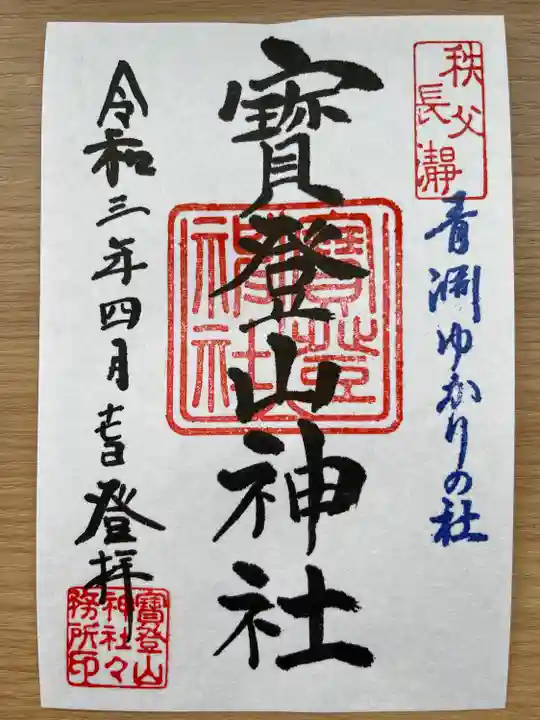 秩父
長瀞
青渊ゆかりの社
寳登山神社
寳登山神社
令和三年四月十一日登拝
寳登山
神社々
務所印